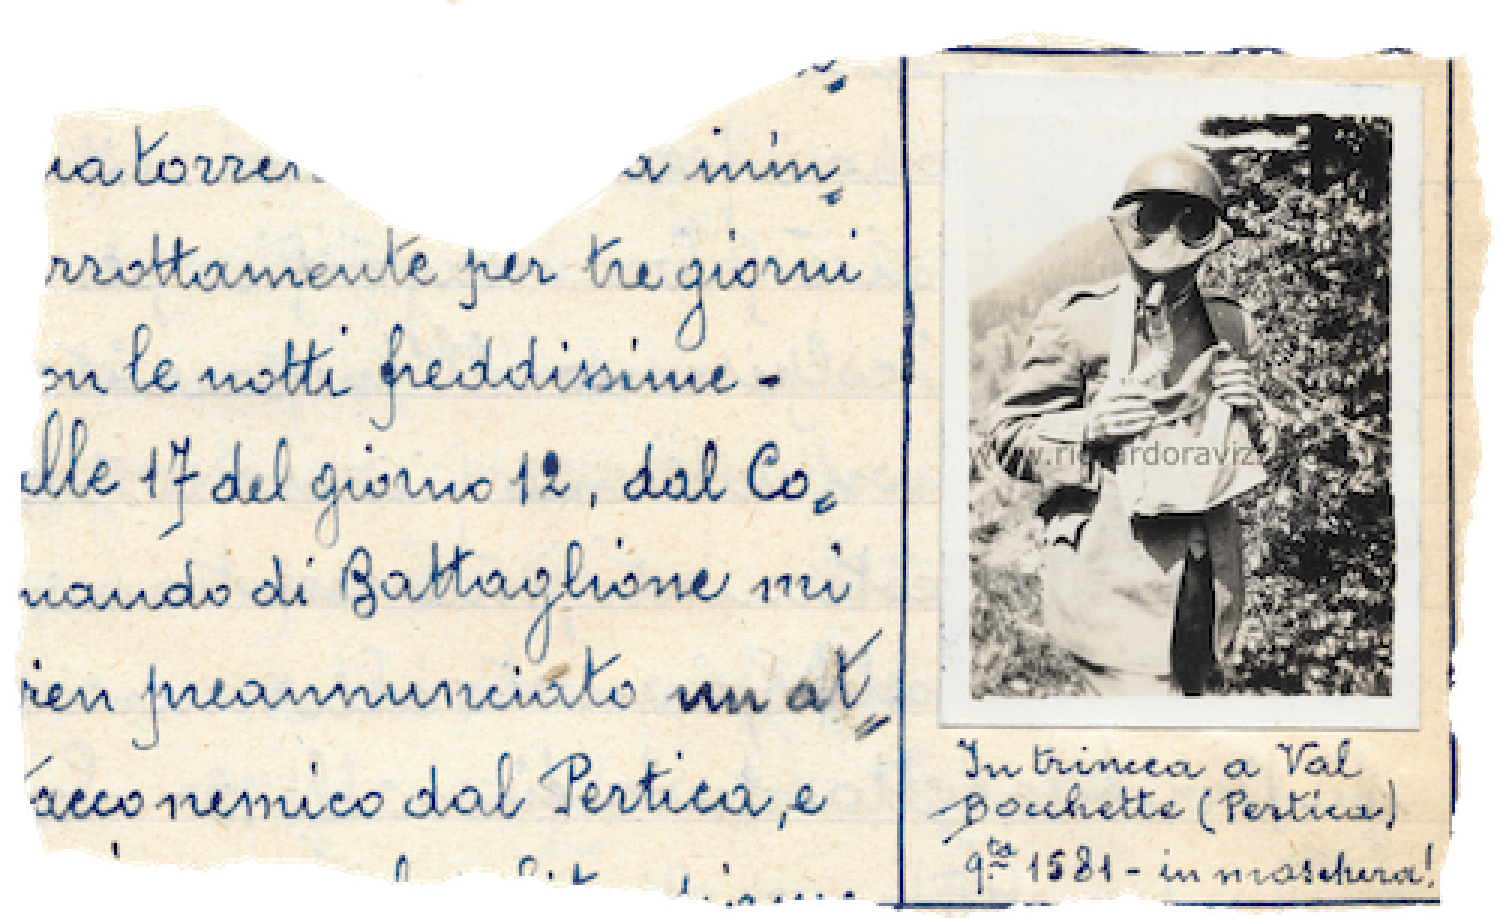 ua torren a inin=
rrottamente per tre giorni
on le notti freddissime -
alle 17 del giorno 12, dal Co=
mando di Battaglione mi
vien preannunciato un at=
tacco nemico dal Pertica, e
www.riccardoraviz
In trincea a Val
Bocchette (Pertica)
q.ta 1581 - in maschera!